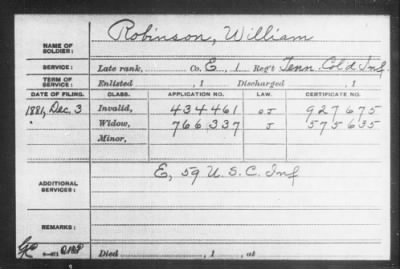 NAME OF SOLDIER: Robinson, William
SERVICE: Late rank, Co. E, 1 Reg't Tenn. Col'd Inf
TERM OF SERVICE: Enlisted , 1 Discharged , 1
DATE OF FILING. CLASS. APPLICATION NO. LAW. CERTIFICATE NO.
1881, Dec. 3 Invalid, 434461 927675
" Widow, 766337 575635
Minor,
ADDITIONAL SERVICES: E, 59 U.S.C. Inf
REMARKS:
Died , 1 , at